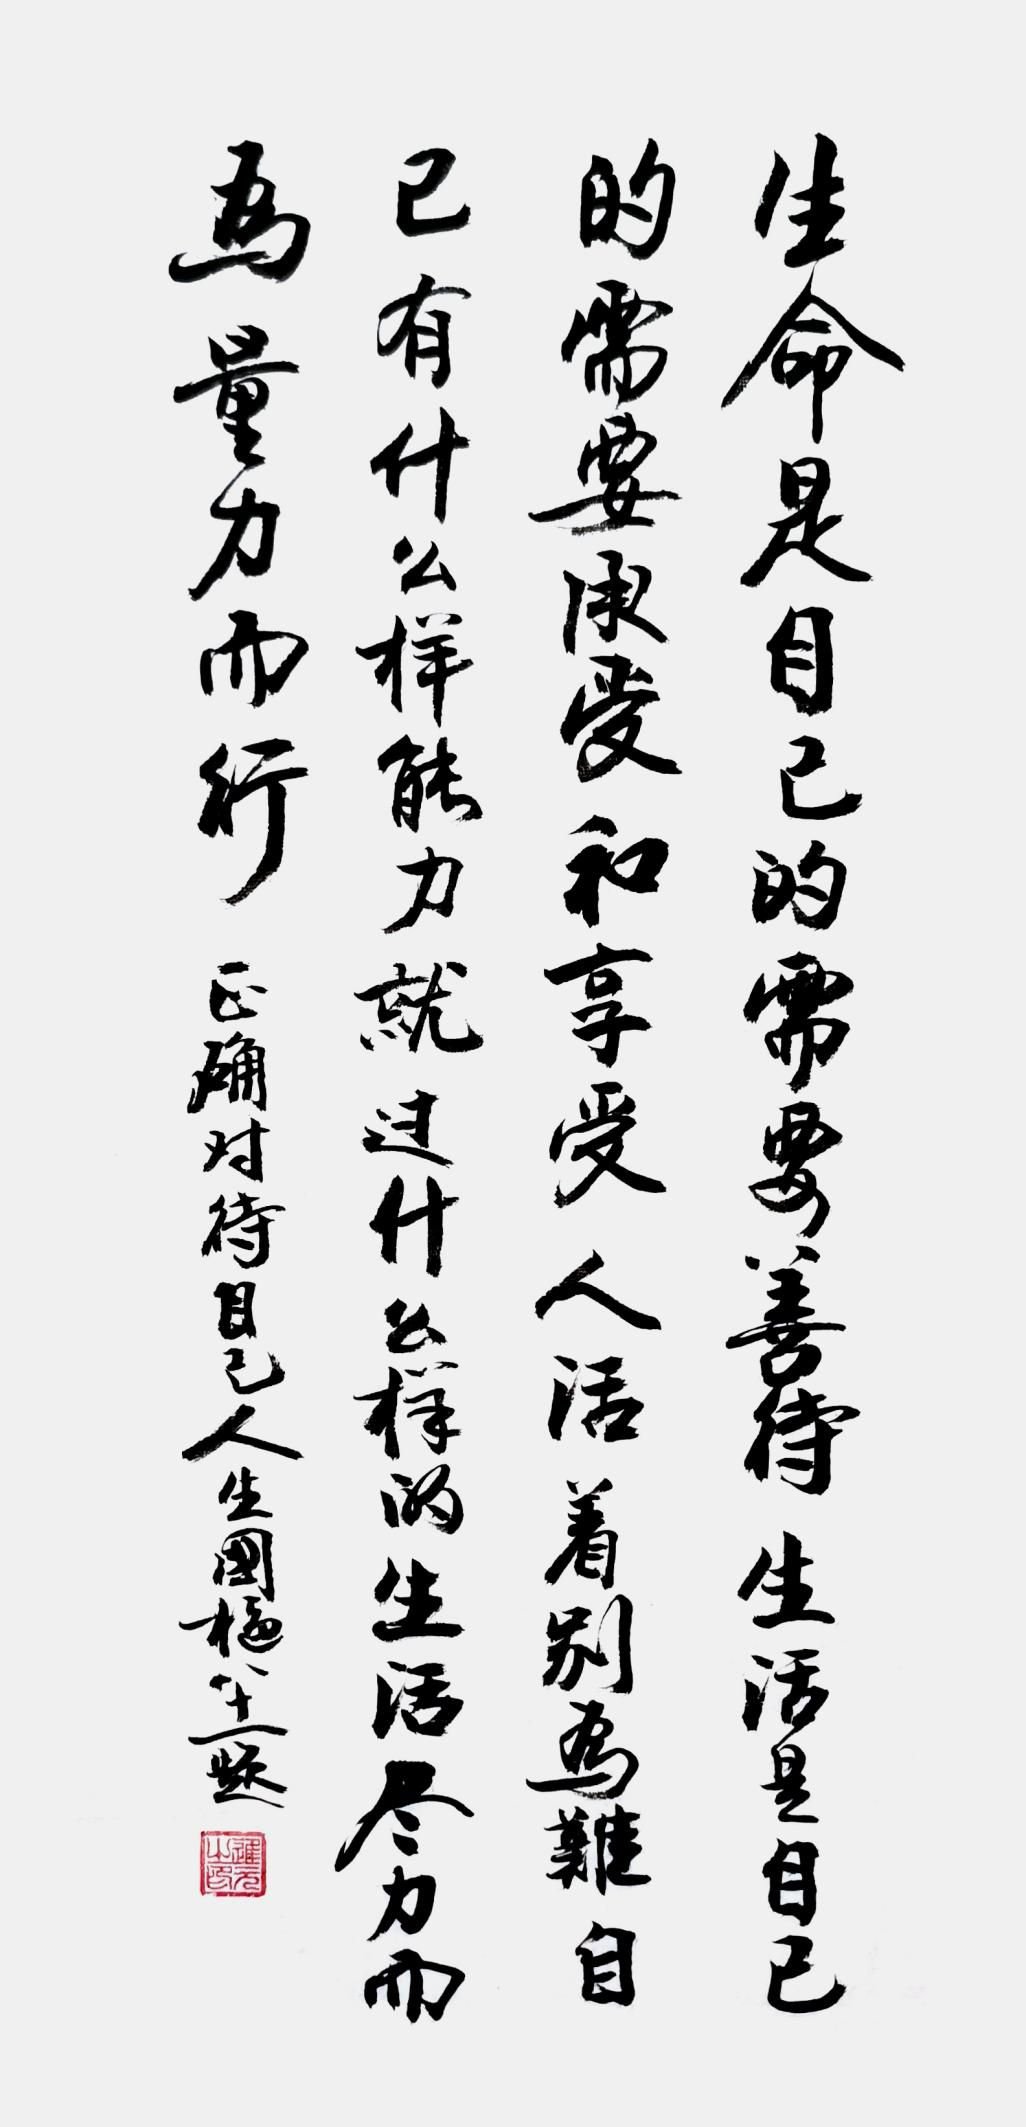 生命是自己的需要善待生活是自己
的需要受和享受人活着别為難自
己有什么样能力就过什么样的生活尽力而
為量力而行 正确对待自己人生國八十一題